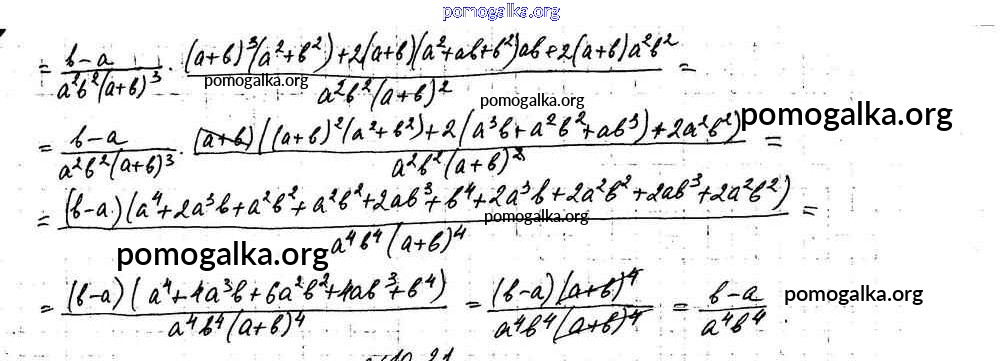 pomogalka.org
= b-a / a²b²(a+b)³ · (a+b)³(a²+b²)+2(a+b)(a²+ab+b²)ab+2(a+b)a²b² / a²b²(a+b)² =
pomogalka.org
pomogalka.org
pomogalka.org
= b-a / a²b²(a+b)³ · (a+b)((a+b)²(a²+b²)+2(a³b+a²b²+ab³)+2a²b²) / a²b²(a+b)² =
= (b-a)(a⁴+2a³b+a²b²+a²b²+2ab³+b⁴+2a³b+2a²b²+2ab³+2a²b²) / a⁴b⁴(a+b)⁴ =
pomogalka.org
pomogalka.org
= (b-a)(a⁴+4a³b+6a²b²+4ab³+b⁴) / a⁴b⁴(a+b)⁴ = (b-a)(a+b)⁴ / a⁴b⁴(a+b)⁴ = b-a / a⁴b⁴.
pomogalka.org